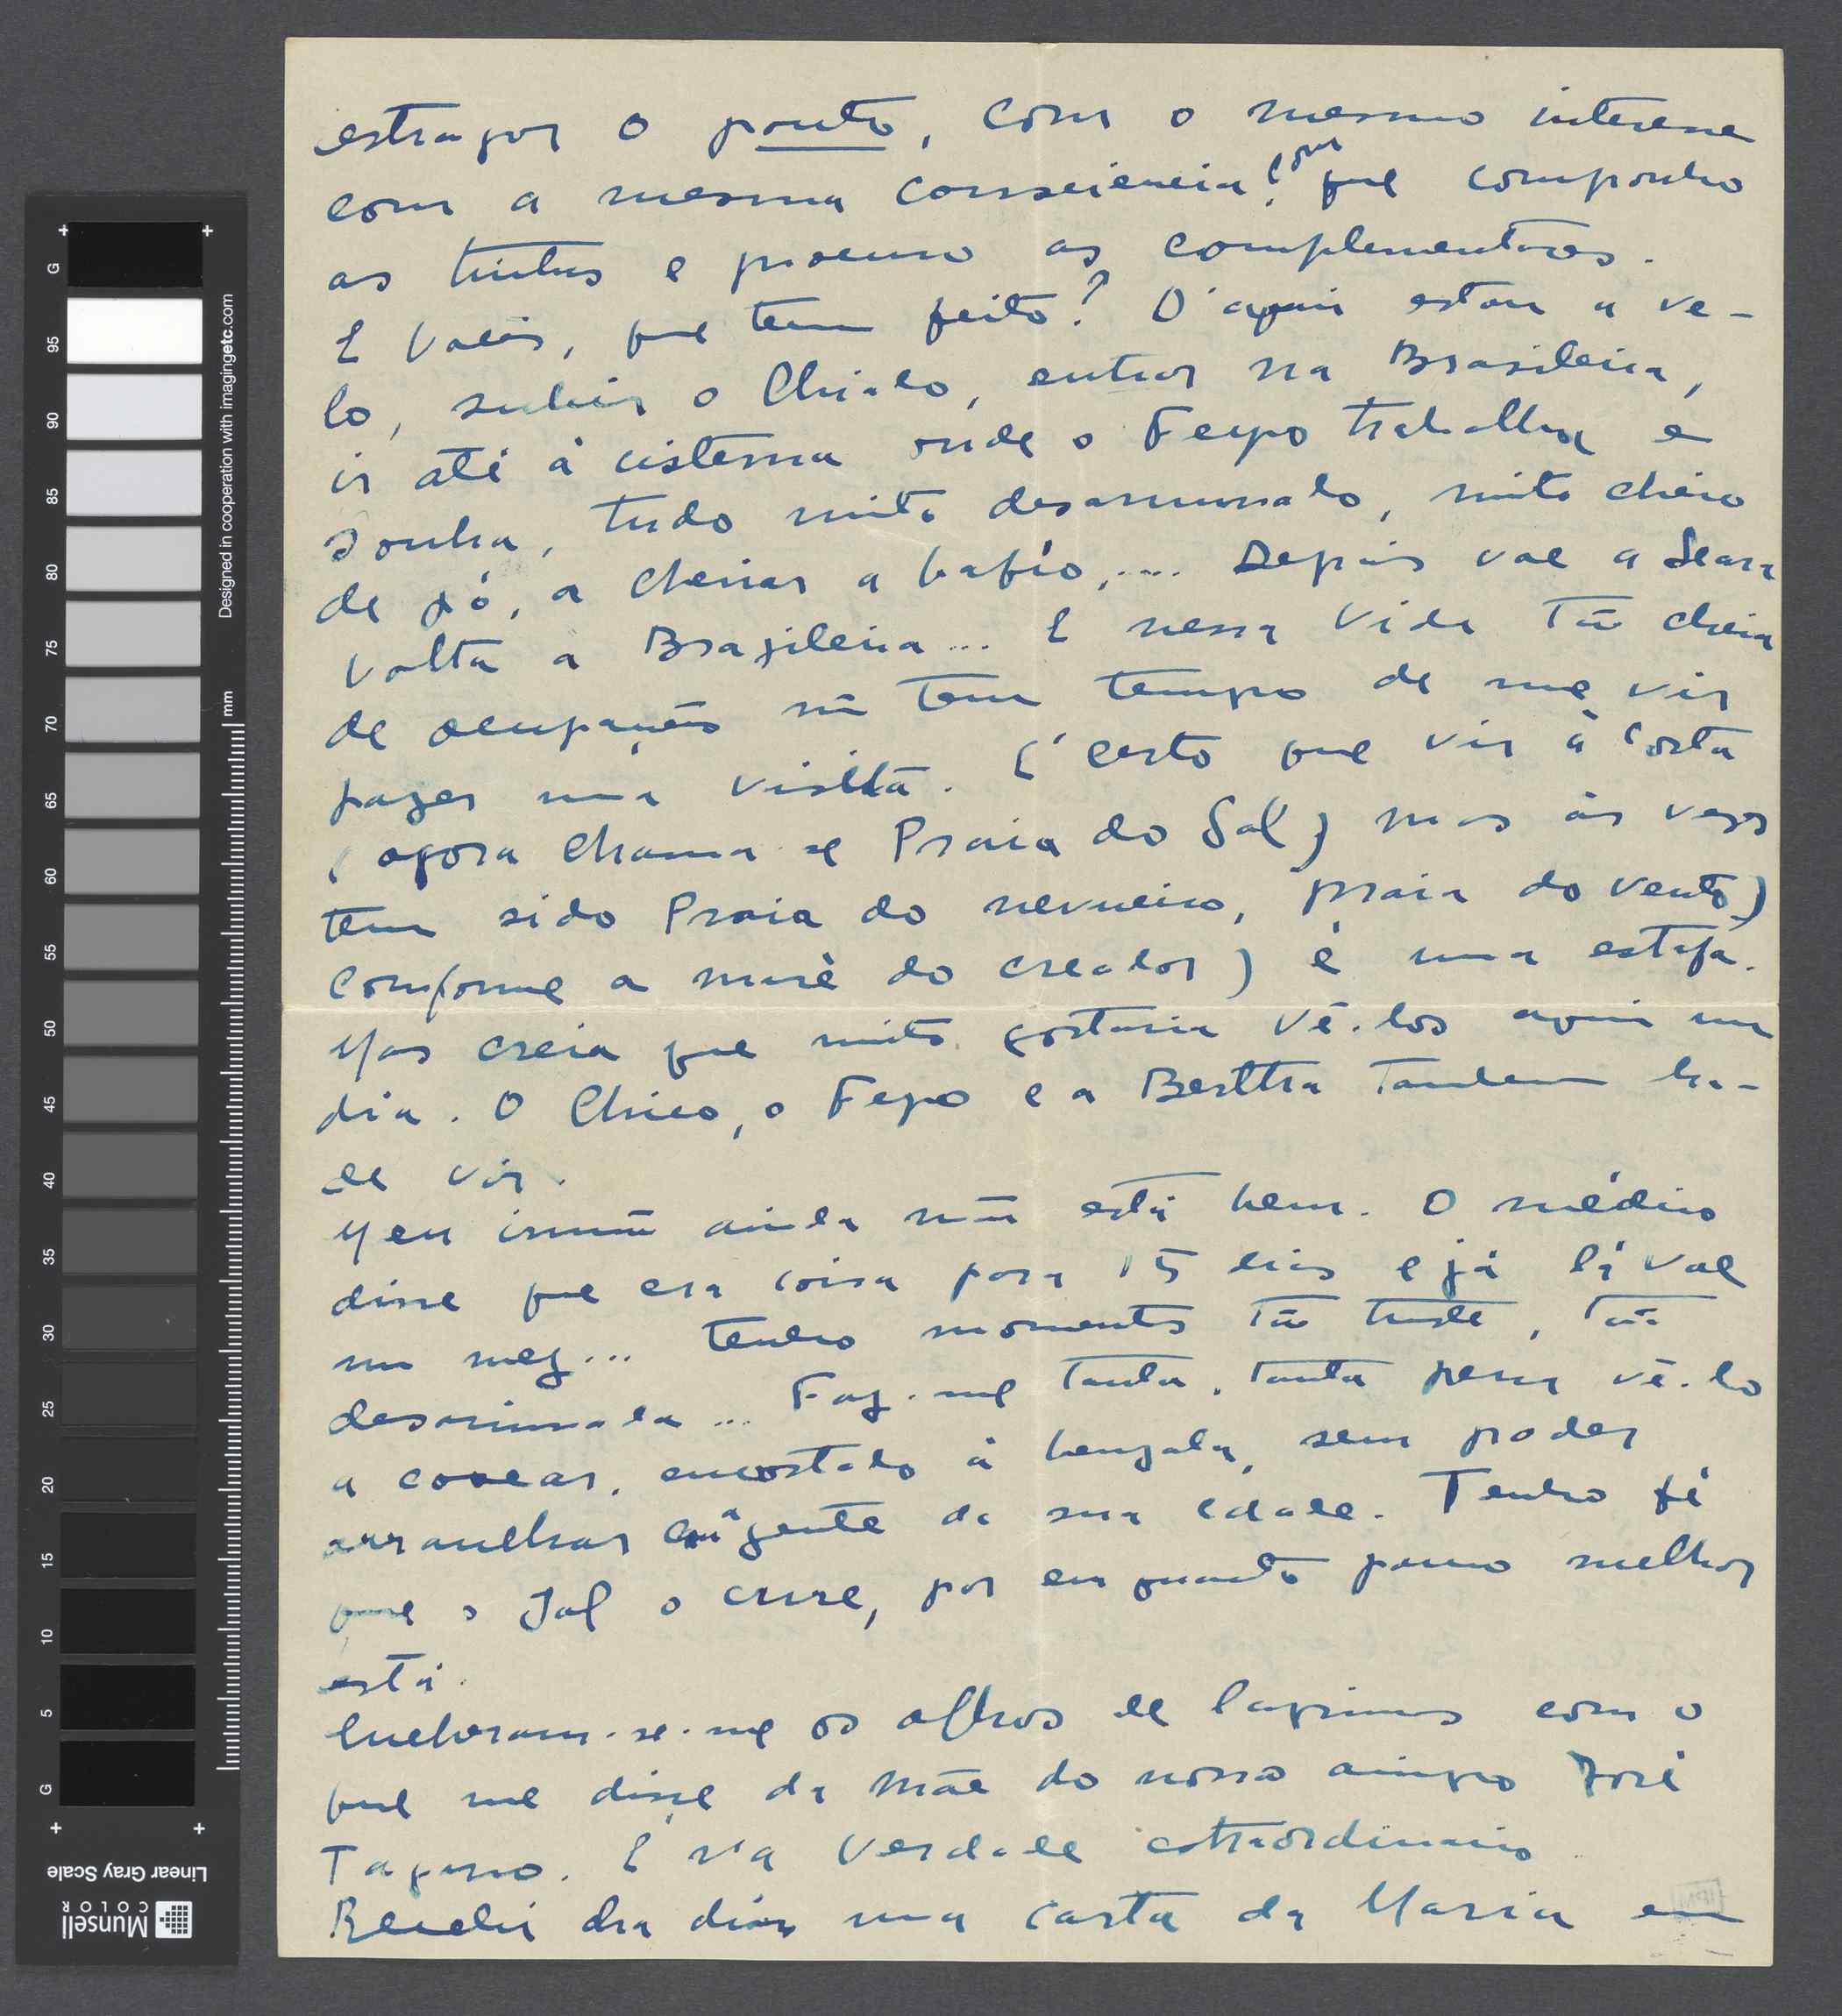 estragor o ponto, com o mesmo interesse
com a mesma consciencia! com que componho
as tintas e procuro as complementares.
E Vocês, que tem feito? D'aqui estou a ve-
lo, subir o Chiado, entrar na Brasileira,
ir até á cisterna onde o Feyo trabalha e
sonha, tudo muito desarrumado, muito cheio
de pó, a cheirar a bafio,.... Depois vae a Seara
volta a Brazileira... E nessa vida tã cheia
de ocupações nã tem tempo de me vir
fazer uma visita. E' certo que vir á Costa
(agora chama se Praia do Sol) mas ás vezes
tem sido Praia do nevoeiro, praia do vento)
conforme a maré do creador) é uma estafa.
Mas creia que muito gostaria vê-los aqui um
dia. O Chico, o Feyo e a Berttha tambem ha-
de vir.
Meu irmão ainda não está bem. O médico
disse que era coisa para 15 dias e já lá vae
um mez... Tenho momentos tã triste, tão
desanimada... Faz-me tanta, tanta pena vê-lo
a coxear, encostado á bengala, sem poder
arranchar á gente da sua edade. Tenho fé
que o Sol o cure, por enquanto pouco melhor
está.
Encheram-se-me os olhos de lagrimas com o
que me disse da Mãe do nosso amigo José
Tagarro. E' n'a verdade extraordinario
Recebi ha dias uma carta da Maria em
Designed in cooperation with imagingetc.com
mm
G 95 90 85 80 75 70 65 60 55 50 45 40 35 30 25 20 15 10 5 G
Linear Gray Scale
Munsell
COLOR